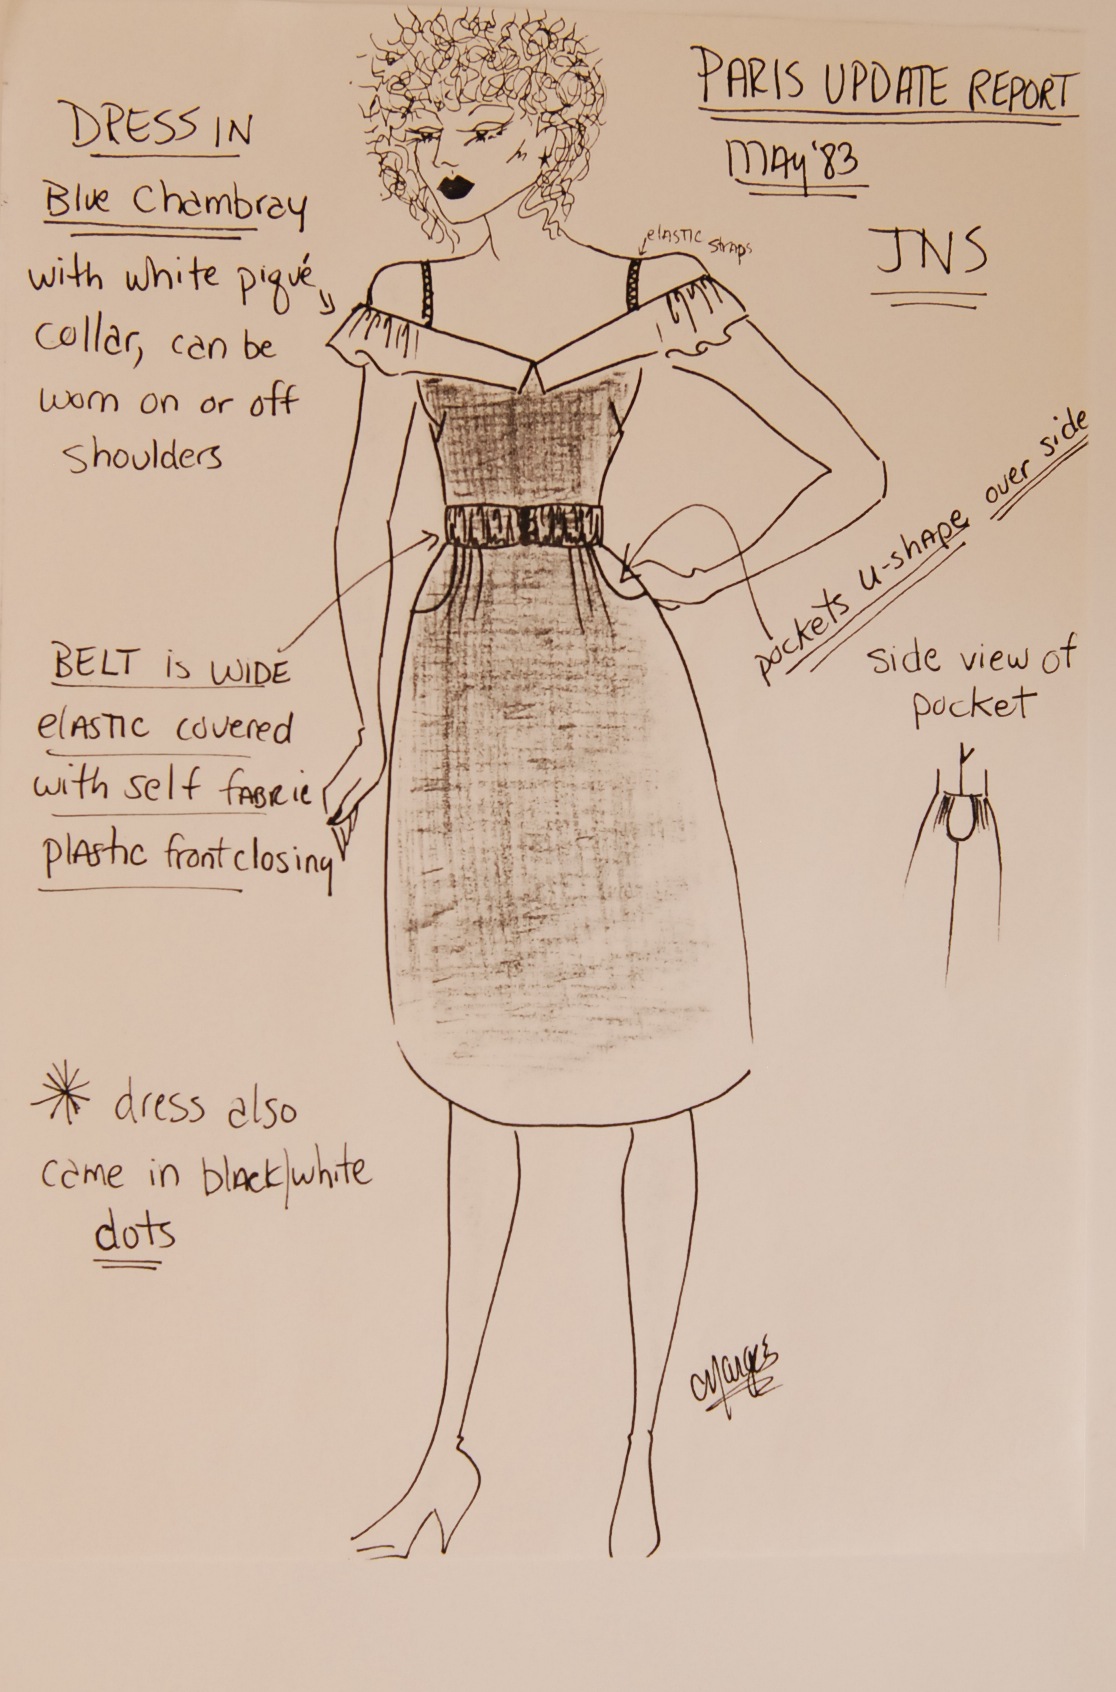 PARIS UPDATE REPORT
MAY '83
JNS
DRESS IN
Blue Chambray
with white piqué
collar, can be
worn on or off
shoulders
elastic straps
pockets u-shape over side
side view of
pocket
BELT is WIDE
elastic covered
with self fabric
plastic front closing
dress also
came in black/white
dots